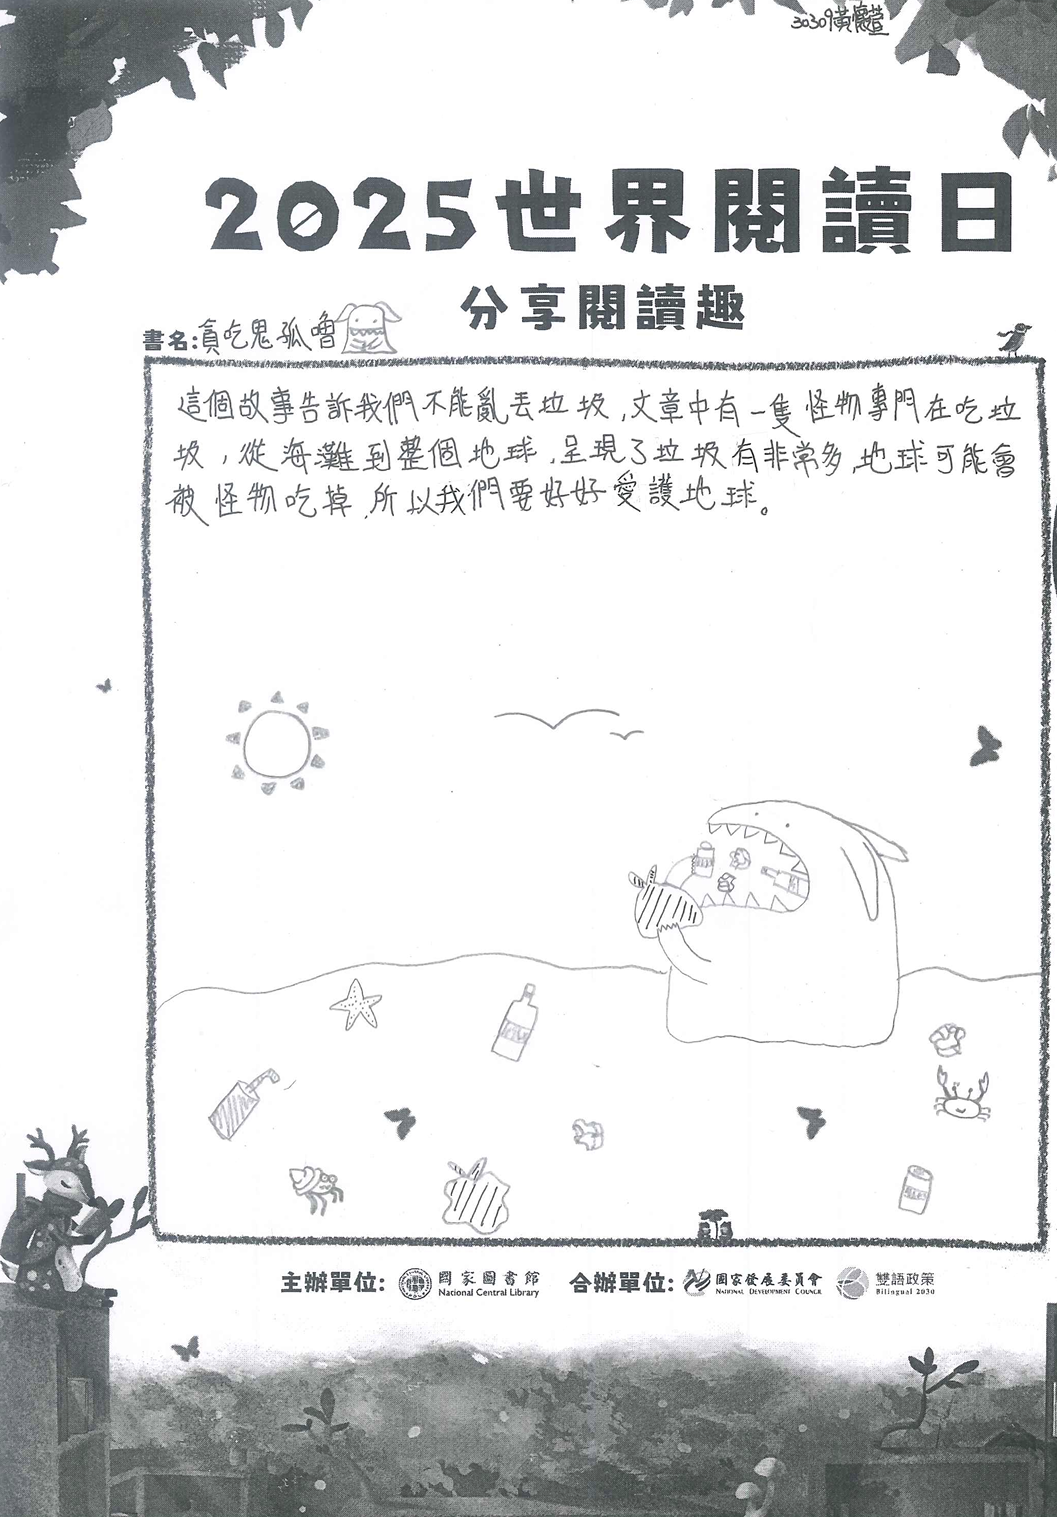 30309黃
2025世界閱讀日
分享閱讀趣
書名:貪吃鬼孤嚕
這個故事告訴我們不能亂丟垃圾,文章中有一隻怪物專門在吃垃
圾,從海灘到整個地球,呈現了垃圾有非常多,地球可能會
被怪物吃掉,所以我們要好好愛護地球。
主辦單位: 國家圖書館 National Central Library 合辦單位: 國家發展委員會 National Development Council 雙語政策 Bilingual 2030